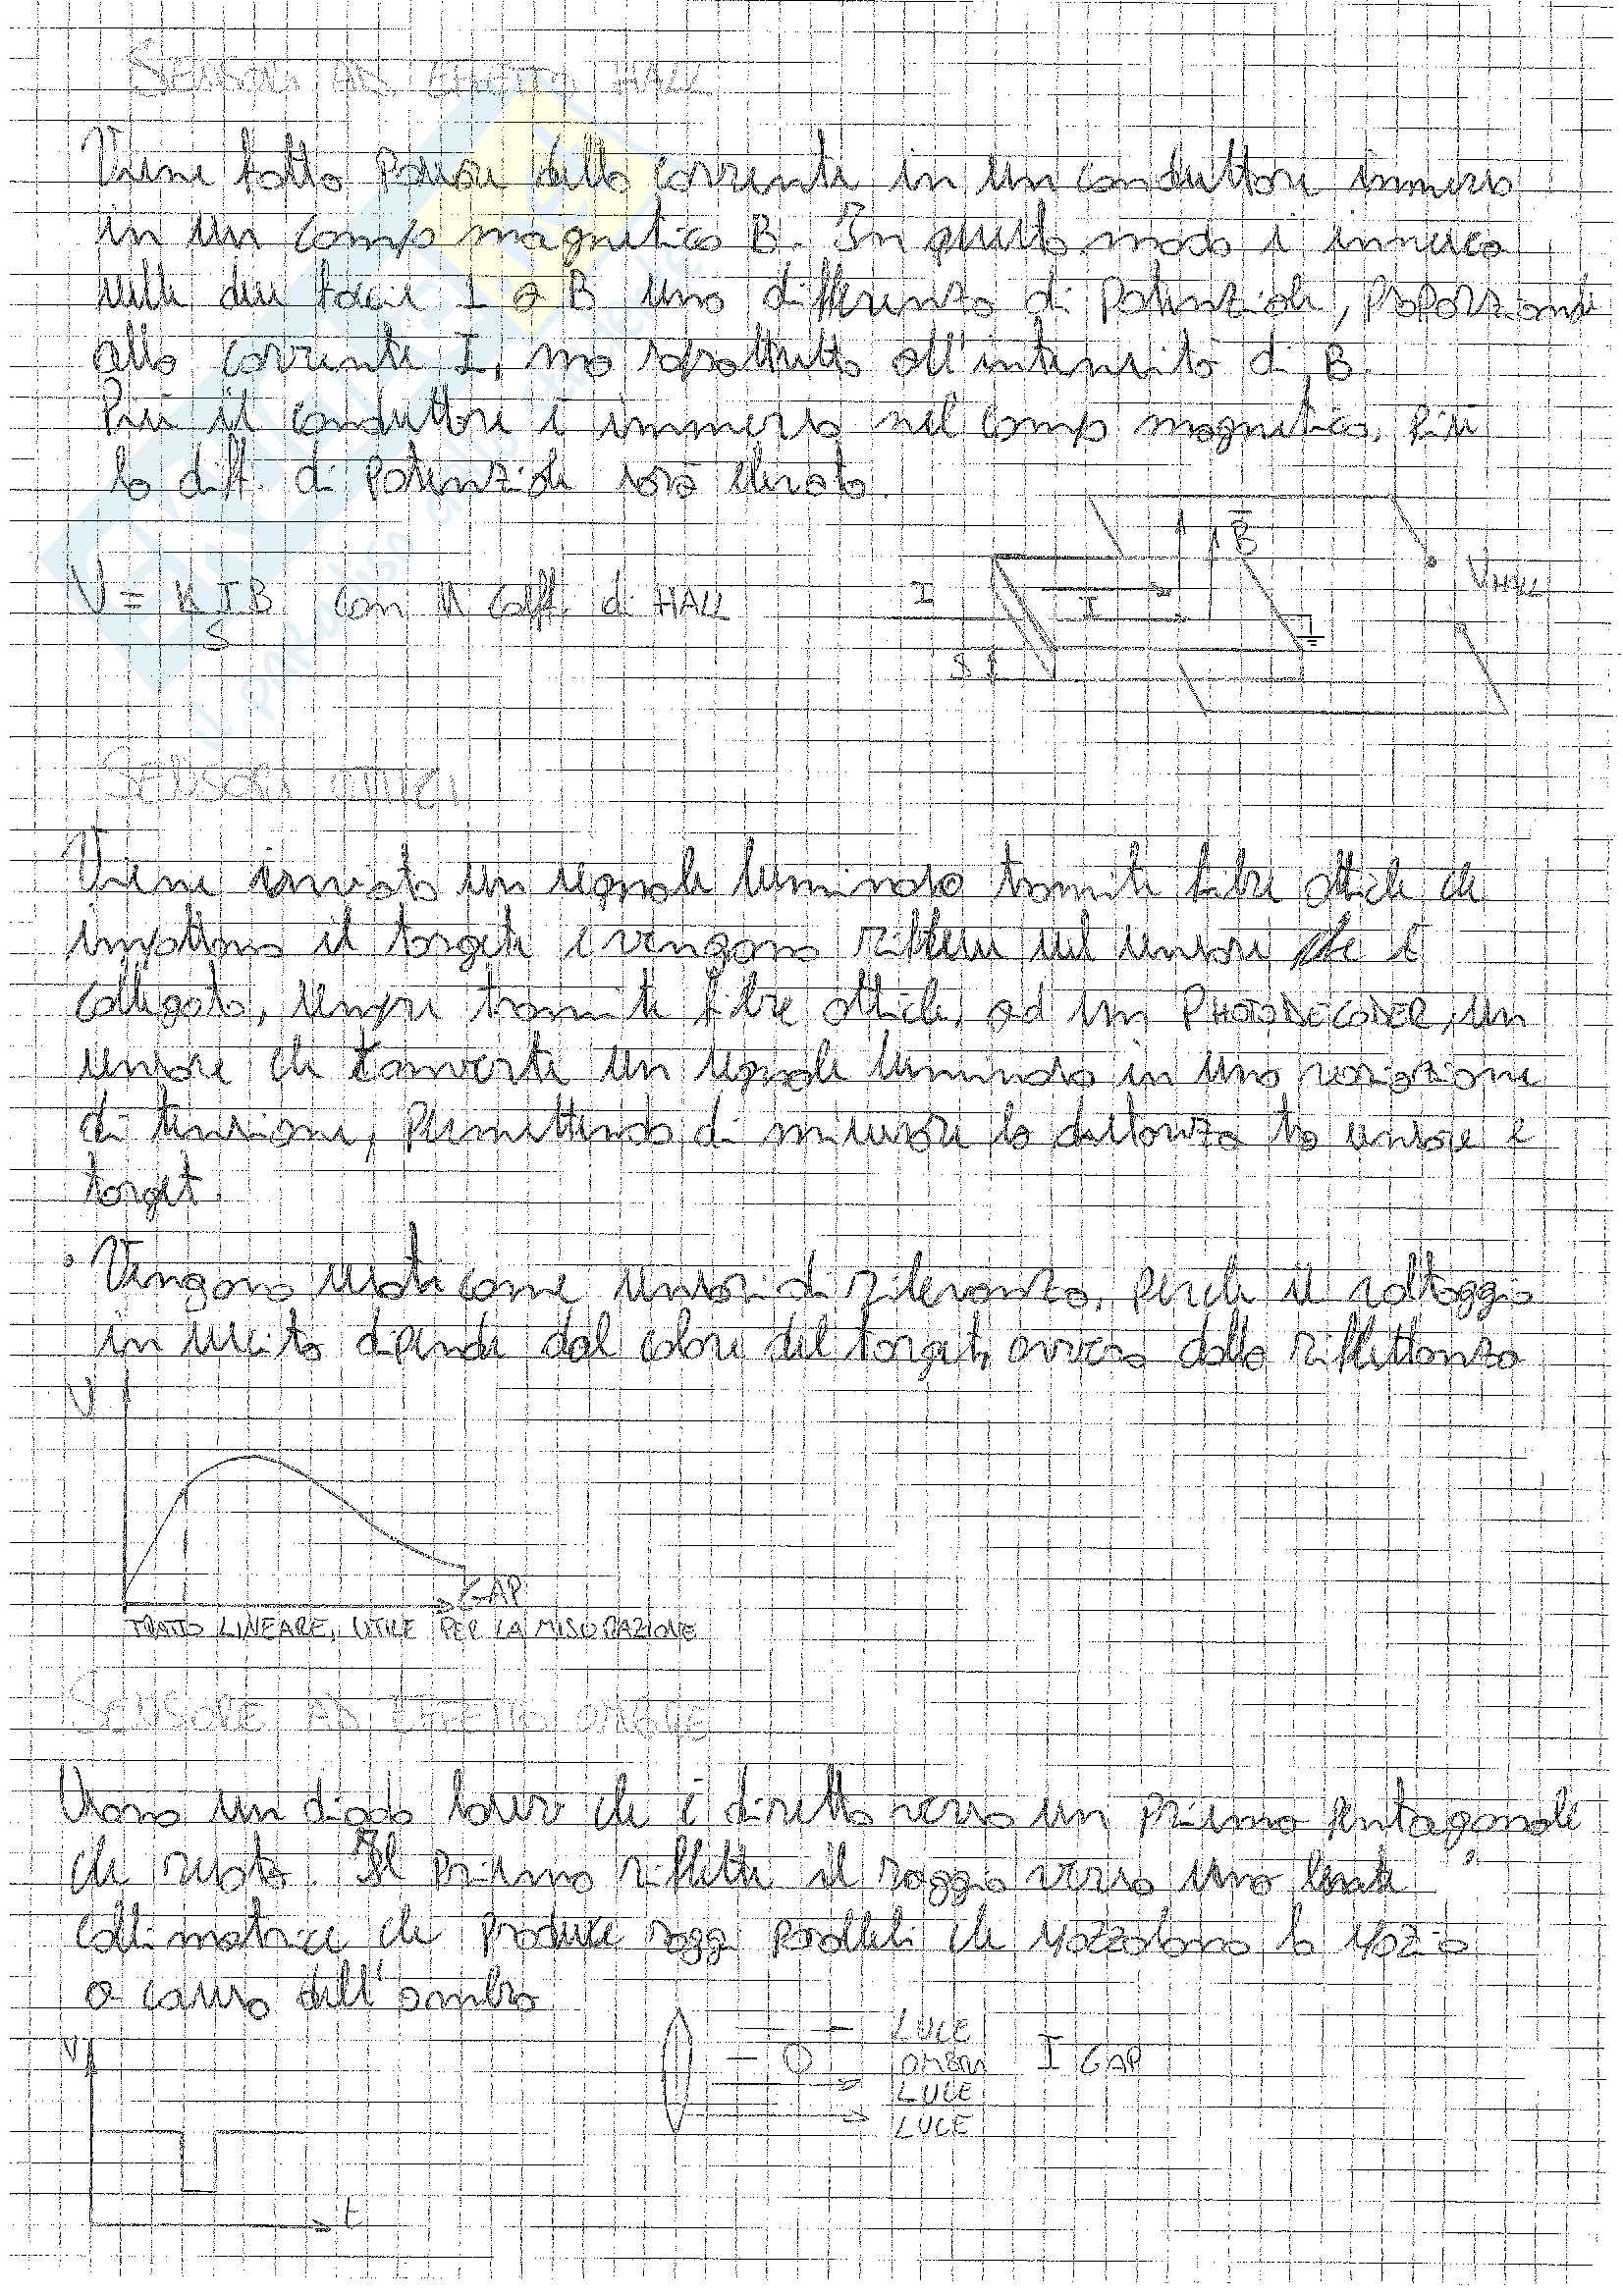 SENSORI AD EFFETTO HALL
Viene fatta passare della corrente in un conduttore immerso
in un campo magnetico B. In questo modo si innesca
sulle due facce ⊥ a B una differenza di potenziale, proporzionale
alla corrente I, ma soprattutto all'intensità di B.
Più il conduttore è immerso nel campo magnetico, più
la diff. di potenziale sarà elevata.
V = K I B / S con K coeff. di HALL
B
I
I
VHALL
S
SENSORI OTTICI
Viene inviato un segnale luminoso tramite fibre ottiche che
impattano il target e vengono riflessi sul sensore che è
collegato, sempre tramite fibre ottiche, ad un PHOTODECODER, un
sensore che converte un segnale luminoso in una variazione
di tensione, permettendo di misurare la distanza tra sensore e
target.
• Vengono usati come sensori di rilevanza, perché il voltaggio
in uscita dipende dal colore del target, ovvero dalla riflettanza
V
GAP
TRATTO LINEARE, UTILE PER LA MISURAZIONE
SENSORE AD EFFETTO OMBRE
Usano un diodo laser che è diretto verso un prisma pentagonale
che ruota. Il prisma riflette il raggio verso una lente
collimatrice che produce raggi paralleli che spazzolano lo spazio
a causa dell'ombra
V
t
LUCE
OMBRA I GAP
LUCE
LUCE